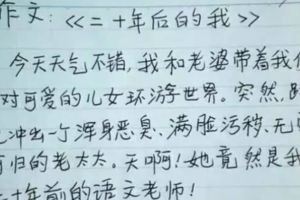 作文:《二十年后的我》
今天天气不错,我和老婆带着我
对可爱的儿女环游世界。突然,
冲出一个浑身恶臭、满脸污秽、无
归的老太太。天啊!她竟然是我
十年前的语文老师!